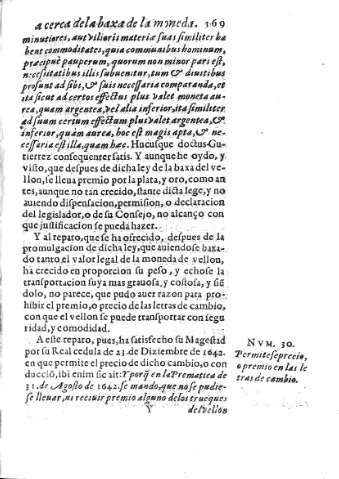 acerca dela baxa de la moneda. 169
minutiores, aut vilioris materia suas similiter ha
bent commoditates, quia communibus hominum,
præcipuè pauperum, quorum non minor pars est,
necessitatibus illis subuenitur, tum & diuitibus
prosunt ad sibi, & suis necessaria comparanda, et
ita sicut ad certos effectus plus valet moneta au-
rea, quam argentea, vel alia inferior, ita similiter
ad suum certum effectum plus valet argentea, &
inferior, quàm aurea, hoc est magis apta, & ne-
cessaria est illa, quam hæc. Hucusque doctus Gu-
tierrez consequenter satis. Y aunque he oydo, y
visto, que despues de dicha ley de la baxa del ve-
llon, se lleua premio por la plata, y oro, como an
tes, aunque no tan crecido, stante dicta lege, y no
auiendo dispensacion, permision, o declaracion
del legislador, o de su Consejo, no alcanço con
que justificacion se pueda hazer.
Y al reparo, que se ha ofrecido, despues de la
promulgacion de dicha ley, que auiendose baxa-
do tanto el valor legal de la moneda de vellon,
ha crecido en proporcion su peso, y echose la
transportacion suya mas grauosa, y costosa, y siẽ
dolo, no parece, que pudo auer razon para pro-
hibir el premio, o precio de las letras de cambio,
con que el vellon se puede transportar con segu
ridad, y comodidad.
A este reparo, pues, ha satisfecho su Magestad
por su Real cedula de 23. de Diziembre de 1642.
en que permite el precio de dicho cambio, o con
duccion, ibi enim sic ait: Y porq̃ en la Prematica de
31. de Agosto de 1642. se mando, que no se pudie-
se lleuar, ni reciuir premio alguno de los trueques
Y del vellon
NVM. 30.
Permitese precio,
o premio en las le
tras de cambio.